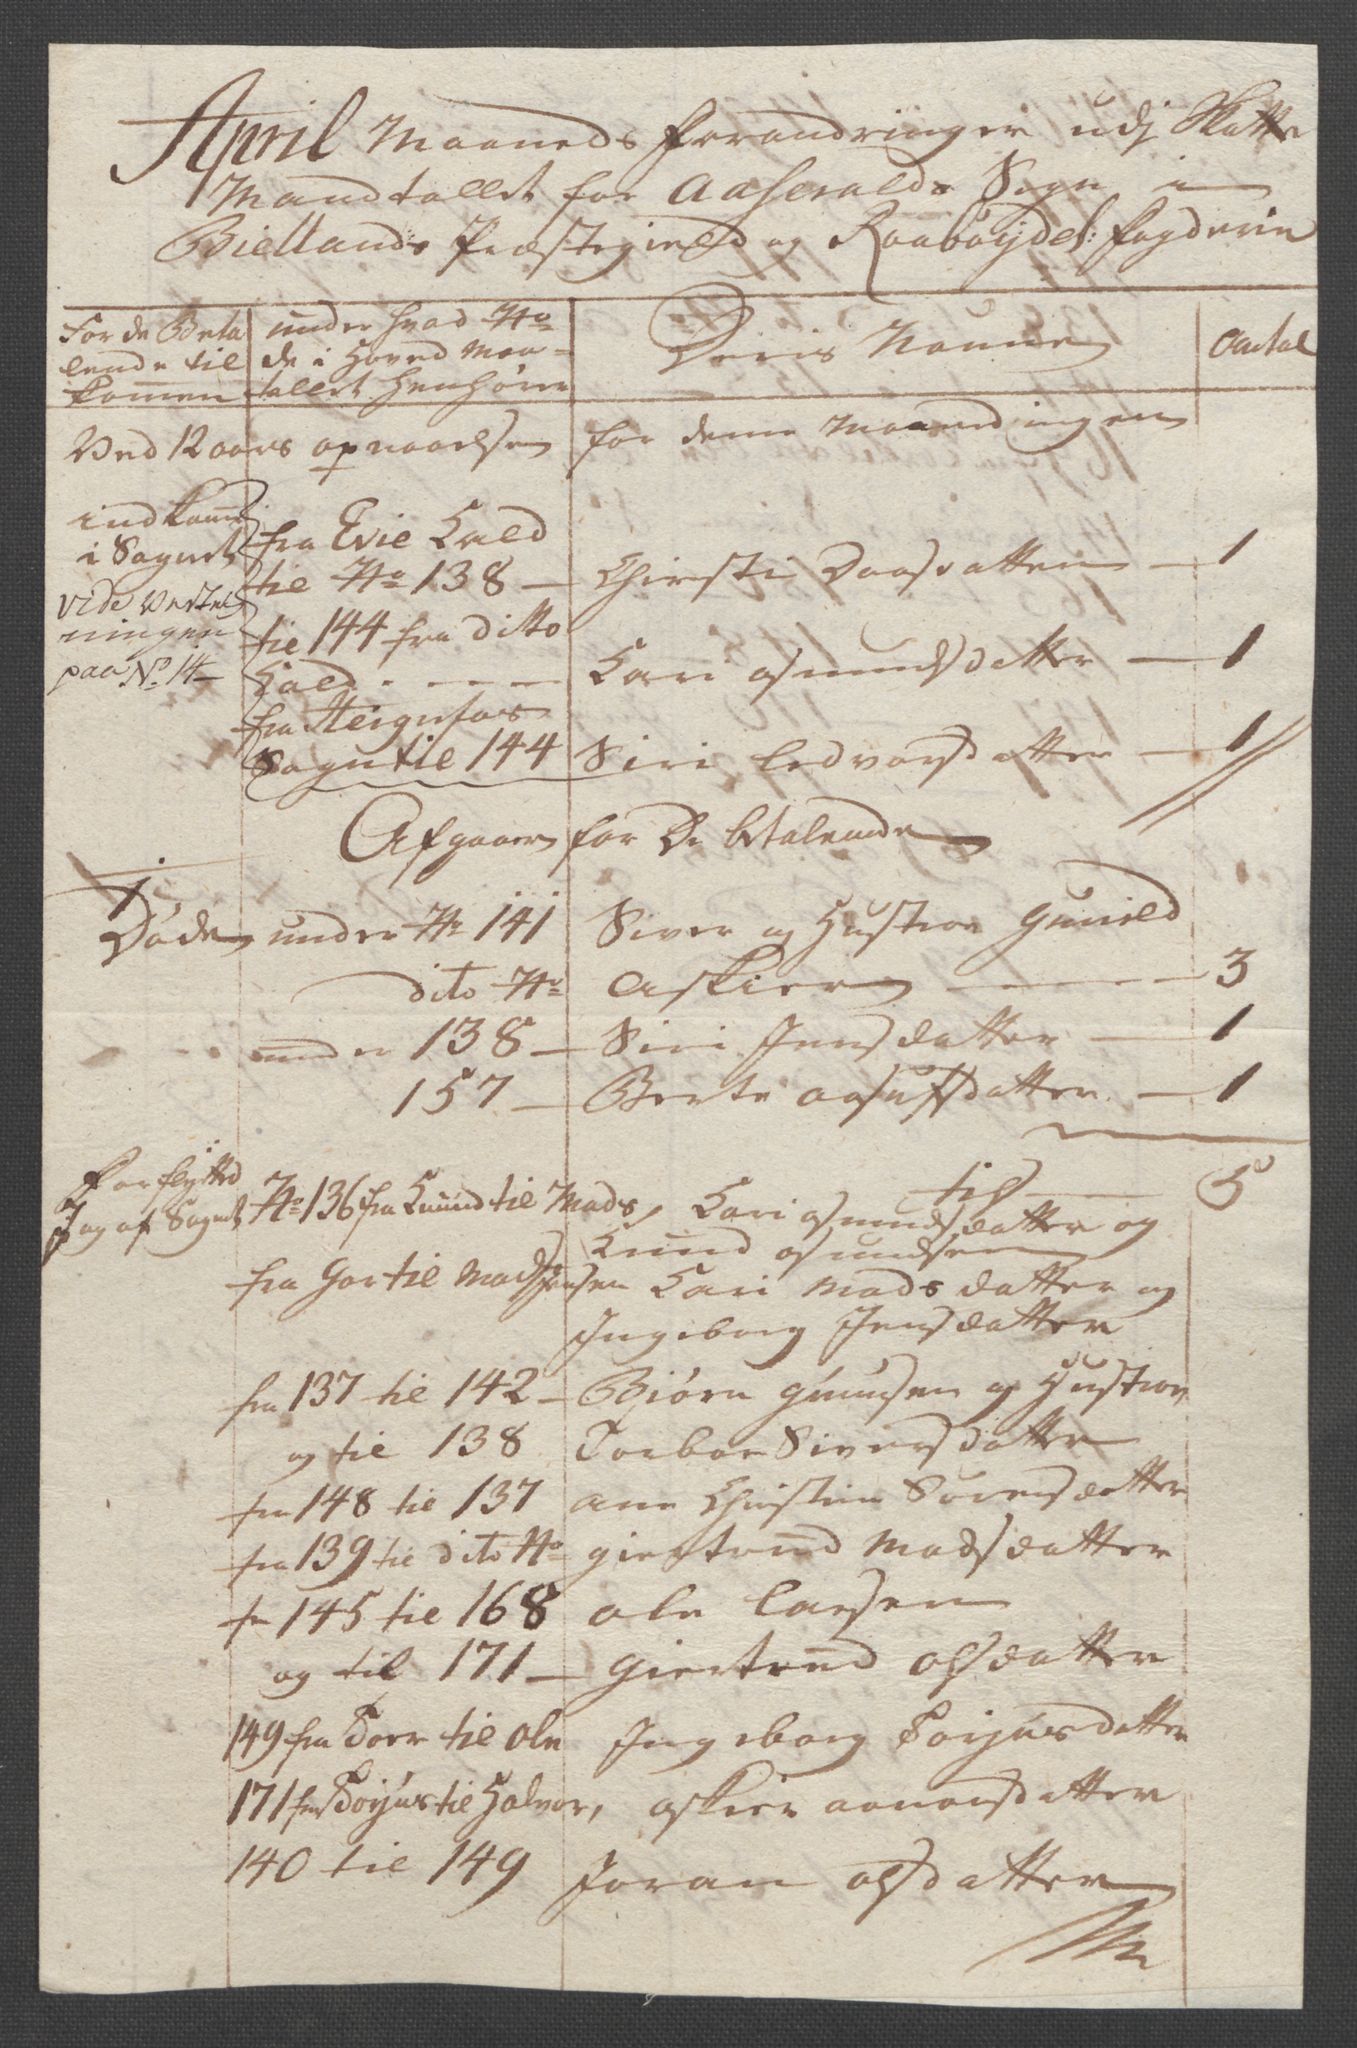 April Maaneds forandringer udj Skatte
Mandtallet for Aaseralds Sogn i
Biellands Præstegield og Raabøydel: fogderie
For de Beta
lende til
kommen
under hvad No
de i Hoved Man
tallet henhører
Deris Naune
Antal
Ved 12 aars opnaaelsen for denne Maaned ingen
indkomne
i Sognet
vide
paa No 14
fra Evie Gield
til No 138 - Chirsti Daasdatter - 1
til 144 fra ditto
Gield - - - Kari osmundsdatter - 1
fra
Sogn til 144 Siri ledvorsdatter - 1
Afgaaer for De betalende
Døde under No 141 Siver og Hustroe Gunild
dito No Askier - - - 3
under 138 - Siri Jensdatter - 1
157 - Berte aasulfsdatter - 1
til - 5
Forflytted
J og af Sognet
No 136 fra Knud til Mads, Kari osmundsdatter og
Knud osmundsen
fra Goe til Mads Jensen Kari Madsdatter og
Ingeborg Jensdatter
fra 137 til 142 - Biørn Gunusen og Hustroe,
og til 138 Torbor Siversdatter
fra 148 til 137 ane Christine Sørensdatter
fra 139 til dito No giertrud Madsdatter
fr 145 til 168 ole Larsen
og til 171 - Giertrud olsdatter
149 fra Toer til Ole Ingeborg Torjusdatter
171 fra Torjus til Halvor, askier aanonsdatter
140 til 149 Joran olsdatter